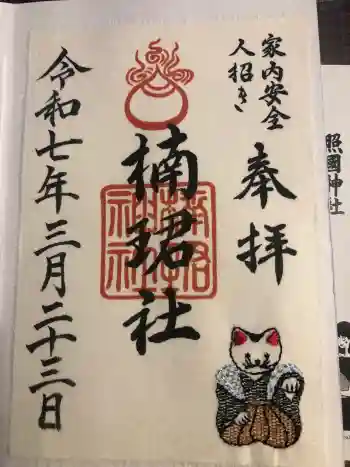 家内安全
人招き
奉拝
楠珺社
令和七年三月二十三日
照國神社